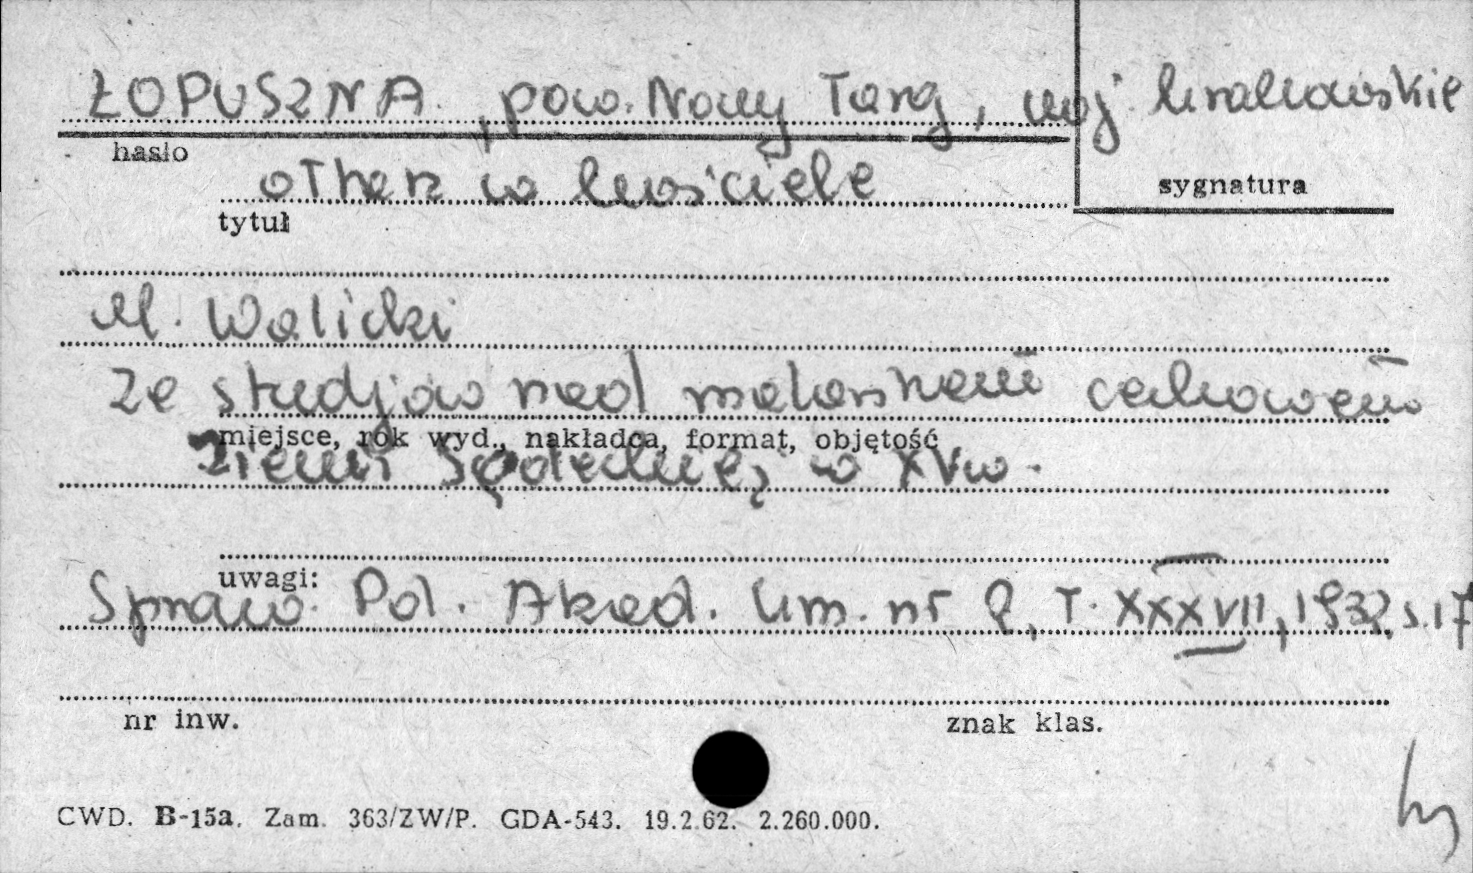 ŁOPUSZNA, pow. Nowy Targ, woj. krakowskie
hasło
ołtarz w kościele
sygnatura
tytuł
M. Walicki
Ze studjów nad malarstwem cechowem
miejsce, rok wyd., nakładca, format, objętość
Ziemi Sądeckiej w XVw.
uwagi:
Spraw. Pol. Akad. Um. nr 2, T. XXXVII, 1932, s. 17
nr inw.
znak klas.
CWD. B-15a. Zam. 363/ZW/P. GDA-543. 19.2.62. 2.260.000.